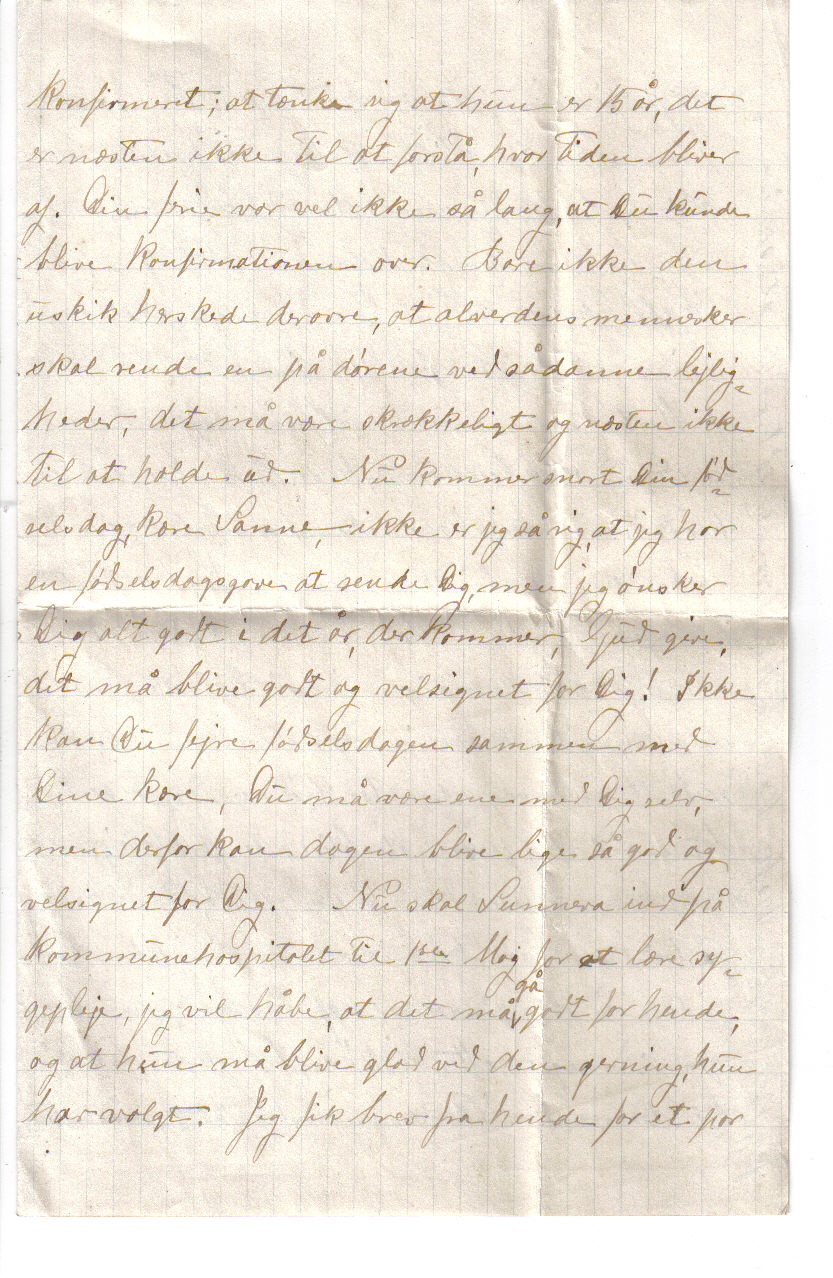 konfirmeret; at tænke sig at hun er 15 år, det
er næsten ikke til at forstå, hvor tiden bliver
af. Din ferie var vel ikke så lang, at Du kunde
blive konfirmationen over. Bare ikke den
uskik herskede derovre, at alverdens mennesker
skal rende en på dørene ved sådanne lejlig=
heder, det må være skrækkeligt og næsten ikke
til at holde ud. Nu kommer snart Din fød=
selsdag, kære Sanne, ikke er jeg så rig, at jeg har
en fødselsdagsgave at sende Dig, men jeg ønsker
Dig alt godt i det år, der kommer, Gud give,
det må blive godt og velsignet for Dig! Ikke
kan Du fejre fødselsdagen sammen med
Dine kære, Du må være ene med Dig selv,
men derfor kan dagen blive lige så god og
velsignet for Dig. Nu skal Sunneva ind på
kommunehospitalet til 1ste Maj for at lære sy=
gepleje, jeg vil håbe, at det må gå godt for hende,
og at hun må blive glad ved den gerning, hun
har valgt. Jeg fik brev fra hende for et par